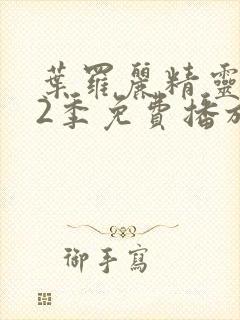 葉羅麗精靈
2季免費播放
御手寫